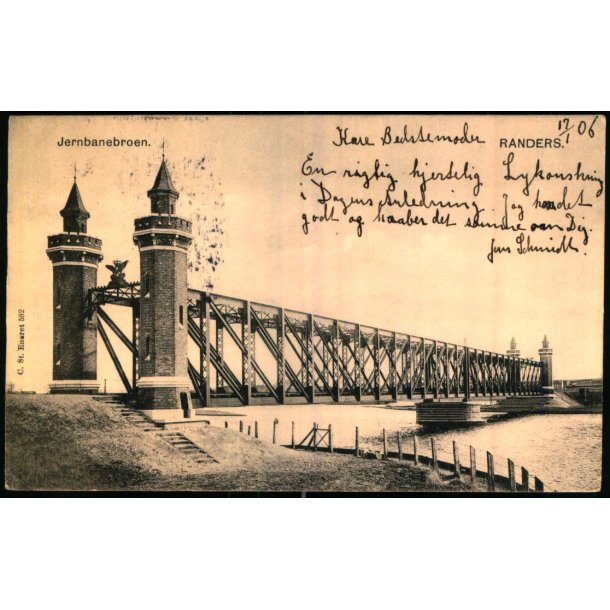 Jernbanebroen.
RANDERS.
17/1 06
Kære Bedstemoder
En rigtig hjertelig Lykønskning
i Dagens Anledning. Jeg har det
godt og haaber det samme om Dig.
Jens Schmidt.
C. St. Eneret 582